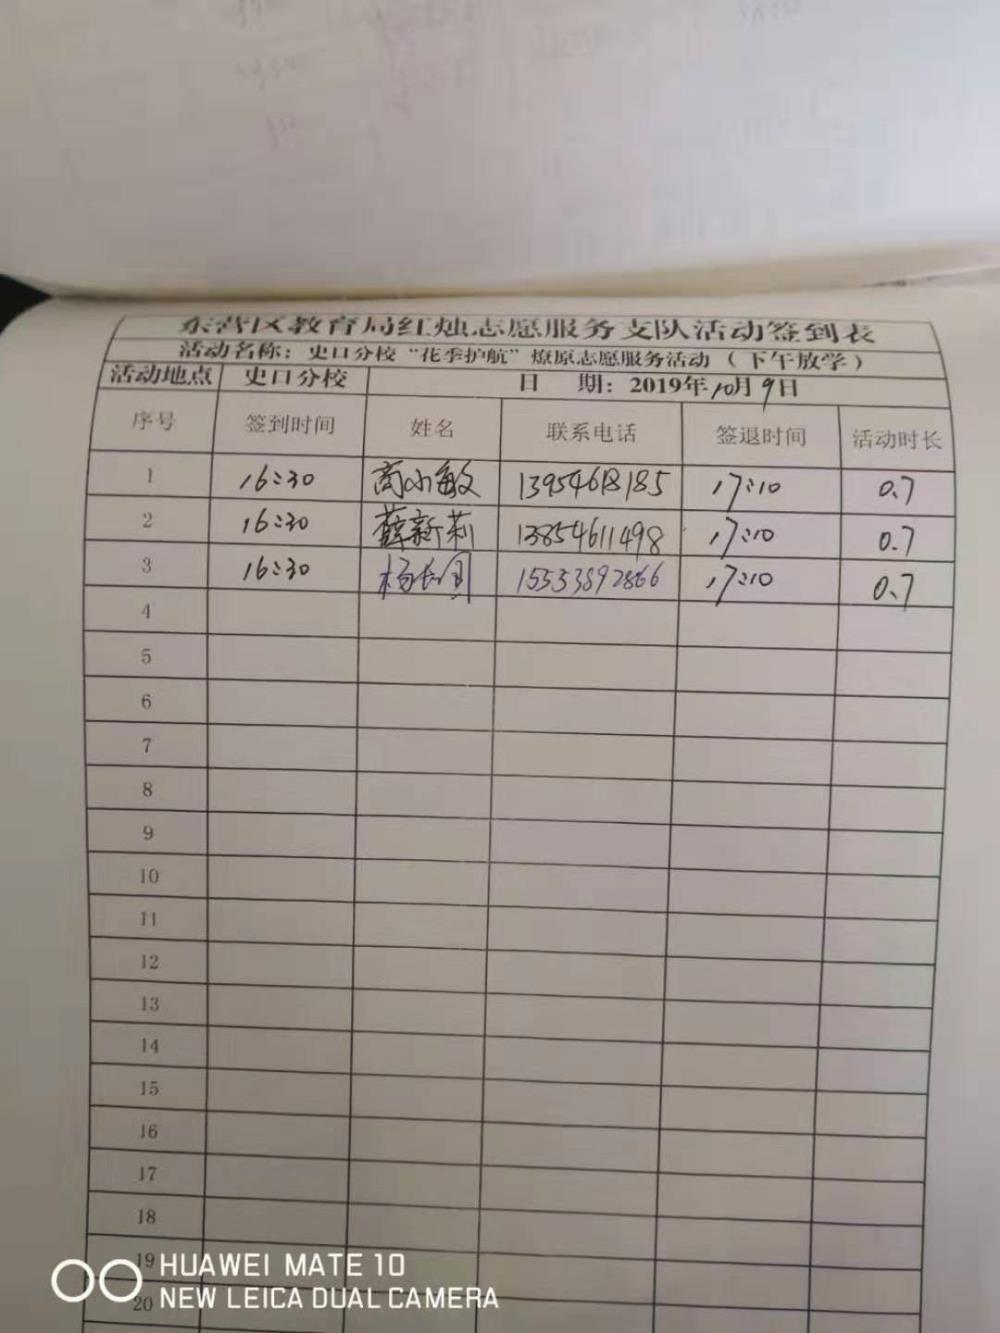 东营区教育局红烛志愿服务支队活动签到表
活动名称：史口分校“花季护航”燎原志愿服务活动（下午放学）
活动地点 史口分校 日 期：2019年10月9日
序号 签到时间 姓名 联系电话 签退时间 活动时长
1 16:30 商小敏 13954618185 17:10 0.7
2 16:30 薛新莉 13854611498 17:10 0.7
3 16:30 15553892866 17:10 0.7
4
5
6
7
8
9
10
11
12
13
14
15
16
17
18
19
20
HUAWEI MATE 10
NEW LEICA DUAL CAMERA